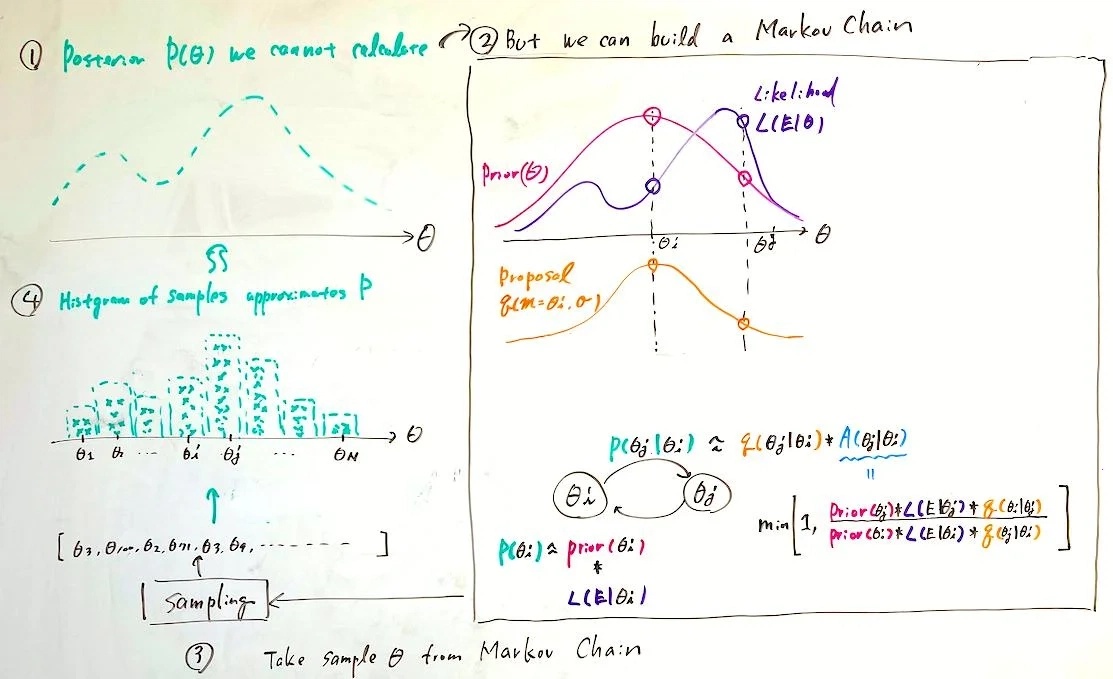 ① Posterior P(θ) we cannot calculate
② But we can build a Markov Chain
Likelihood
L(E|θ)
Prior(θ)
θ
θi
θj
θ
Proposal
q(m=θi, σ)
④ Histgram of samples approximates P
θ
θ1
θi
θj
...
θN
P(θj|θi) ≈ q(θj|θi) * A(θj|θi)
=
θi
θj
min[1, Prior(θj)*L(E|θj)*q(θi|θj)
Prior(θi)*L(E|θi)*q(θj|θi) ]
P(θi) ≈ prior(θi)
*
L(E|θi)
θ3,
θ2, θ71, θ3, θ9, --------
Sampling
③ Take sample θ from Markov Chain